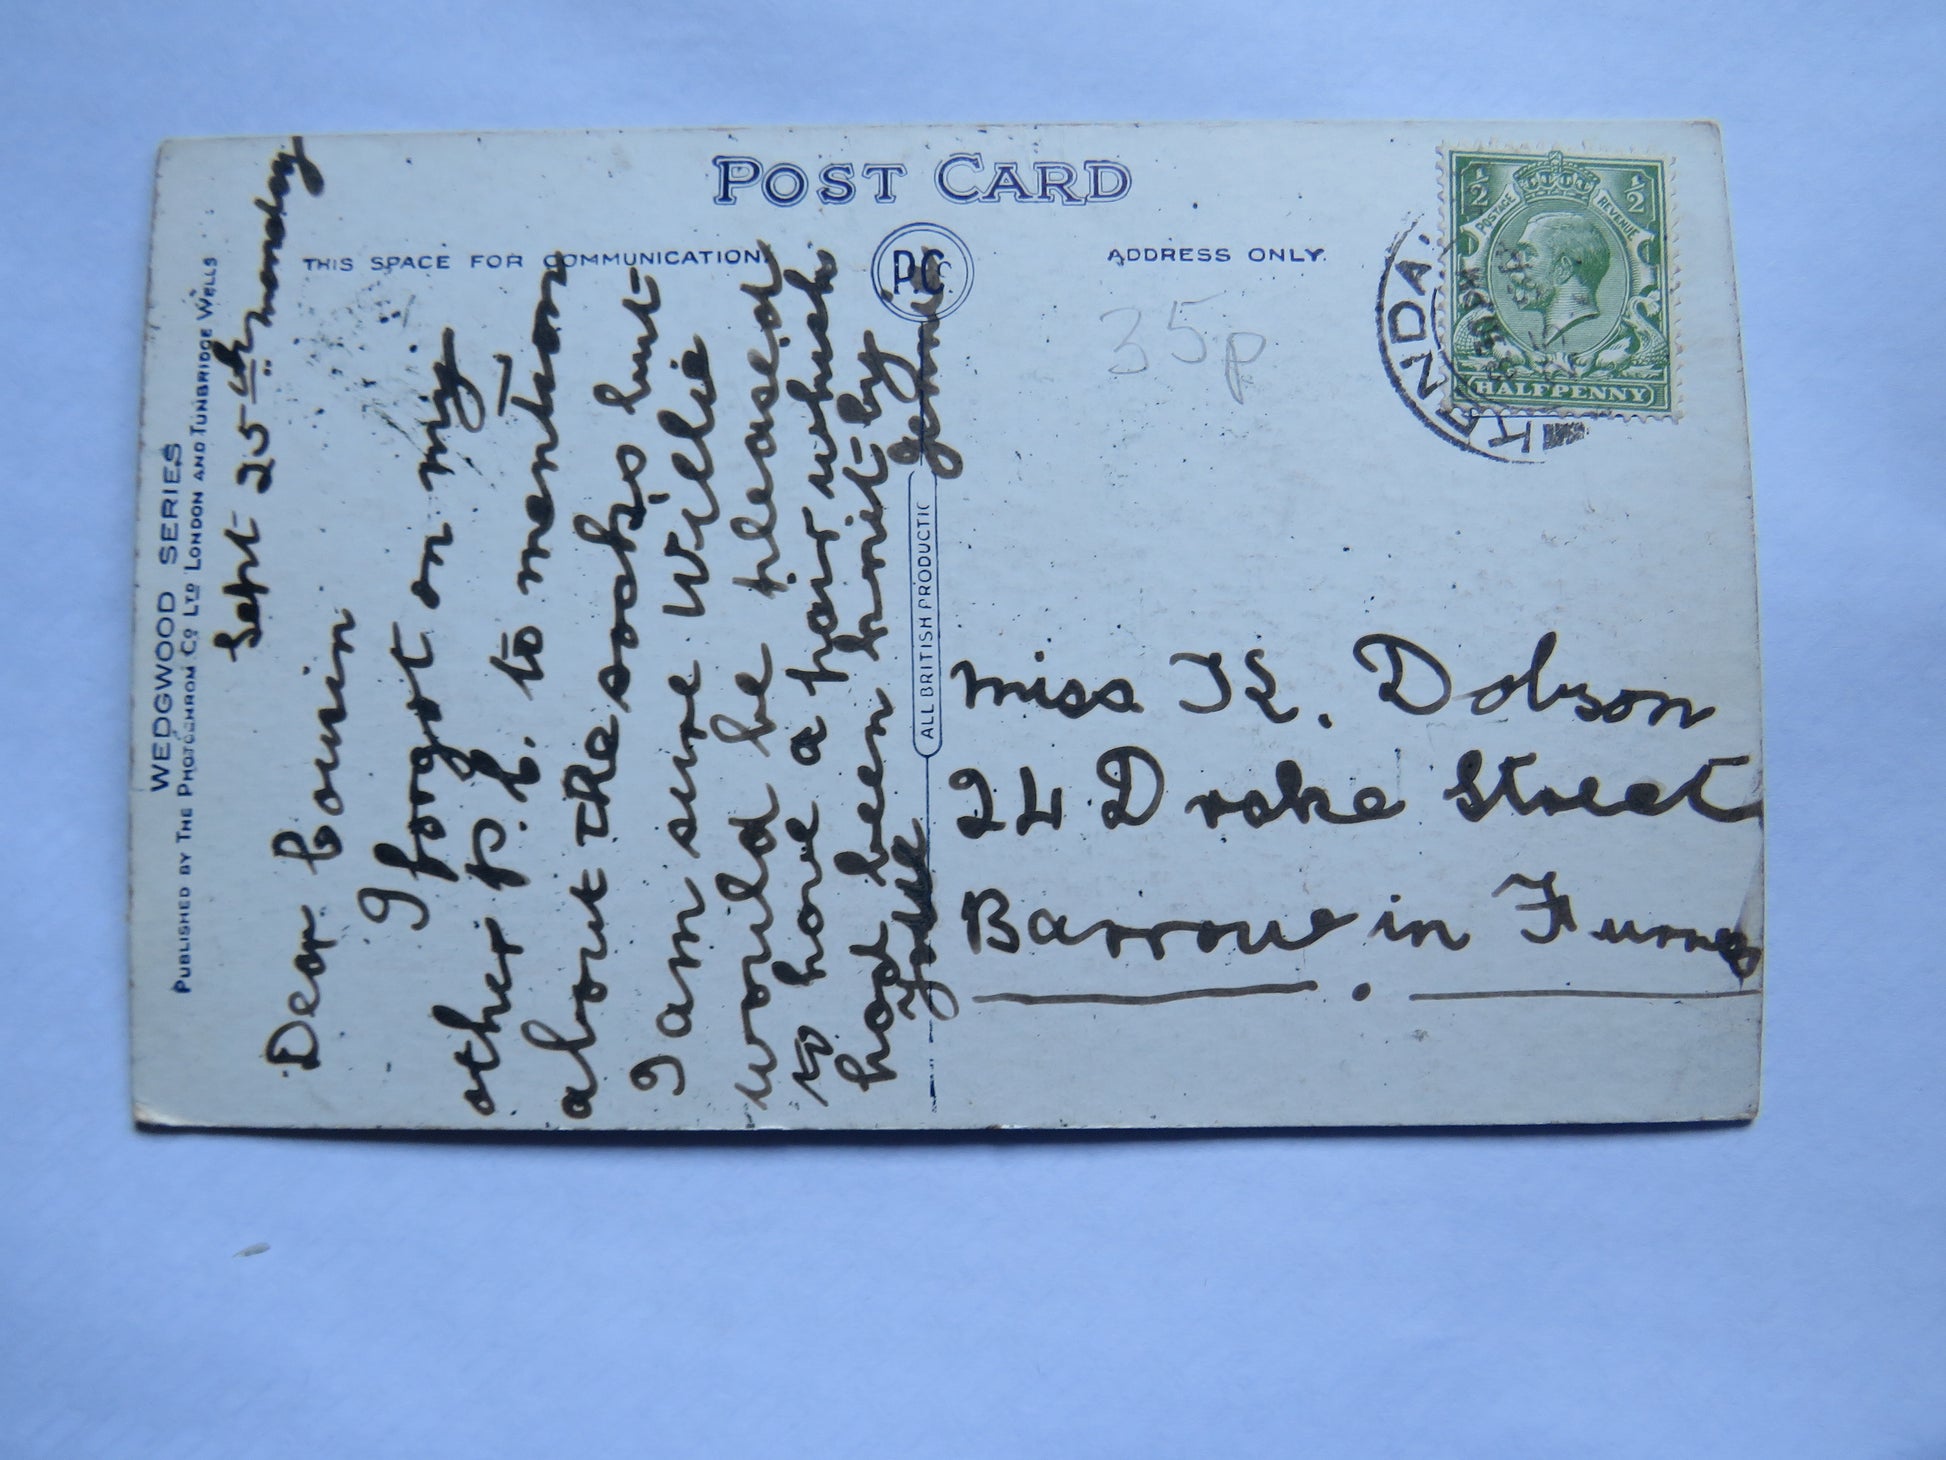 POST CARD
THIS SPACE FOR COMMUNICATION.
ADDRESS ONLY.
PC
WEDGWOOD SERIES
PUBLISHED BY THE PHOTOCHROM Co. LTD LONDON AND TUNBRIDGE WELLS
ALL BRITISH PRODUCTIO
Sept 25th monday
Dear Cousin
I forgot on my
other p.c. to mention
about the socks but
I am sure Willie
would be pleased
to have a pair which
had been knit by
you
35p
Miss K. Dobson
24 Drake Street
Barrow in Furness
KENDA
½ ½
POSTAGE REVENUE
HALFPENNY